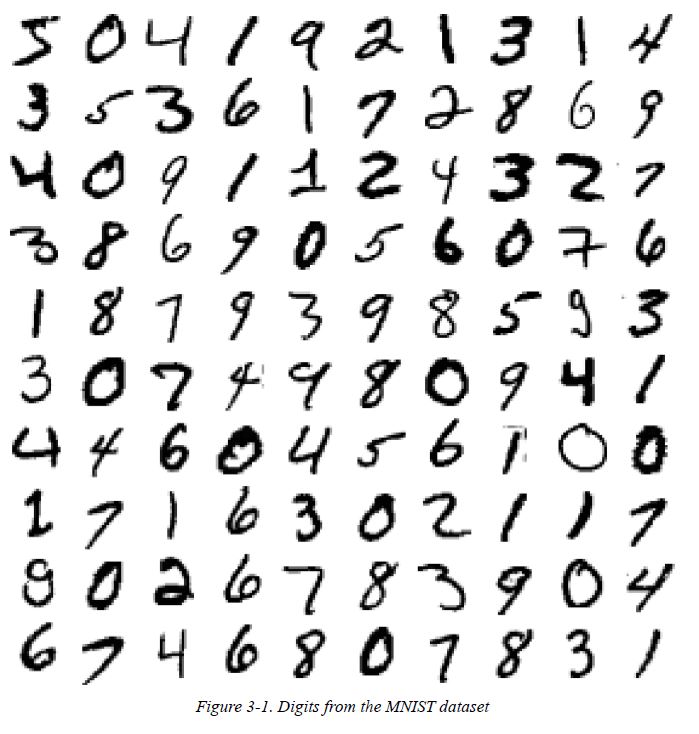 5 0 4 1 9 2 1 3 1 4
3 5 3 6 1 7 2 8 6 9
4 0 9 1 1 2 4 3 2 7
3 8 6 9 0 5 6 0 7 6
1 8 7 9 3 9 8 5 9 3
3 0 7 4 9 8 0 9 4 1
4 4 6 0 4 5 6 1 0 0
1 7 1 6 3 0 2 1 1 7
8 0 2 6 7 8 3 9 0 4
6 7 4 6 8 0 7 8 3 1
Figure 3-1. Digits from the MNIST dataset